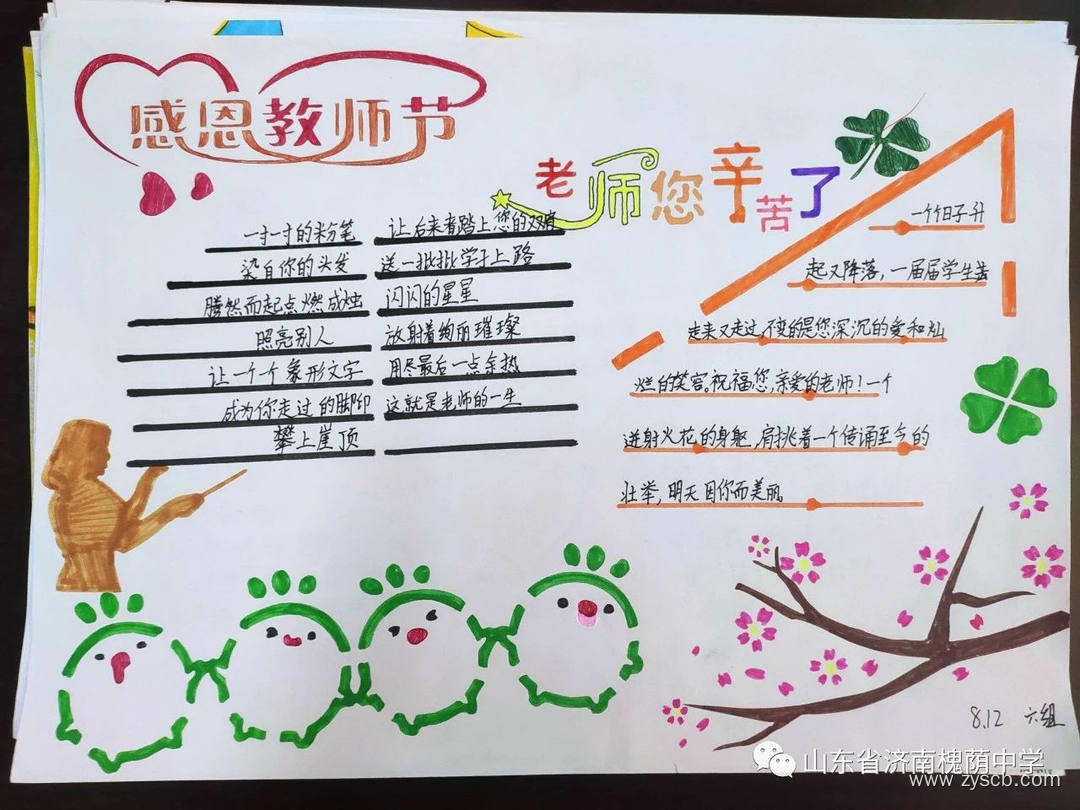 感恩教师节
老师您辛苦了
一寸寸的粉笔
染白你的头发
腾然而起点燃成烛
照亮别人
让一个个象形文字
成为你走过的脚印
攀上崖顶
让后来者踏上您的双肩
送一批批学子上路
闪闪的星星
放射着绚丽璀璨
用尽最后一点余热
这就是老师的一生
一个个日子升
起又降落，一届届学生去
走来又走过，不变的是您深沉的爱和灿
烂的笑容。祝福您，亲爱的老师！一个
迸射火花的身躯，肩挑着一个传诵至今的
壮举，明天因你而美丽
8.12 六组
山东省济南槐荫中学
www.zyscb.com